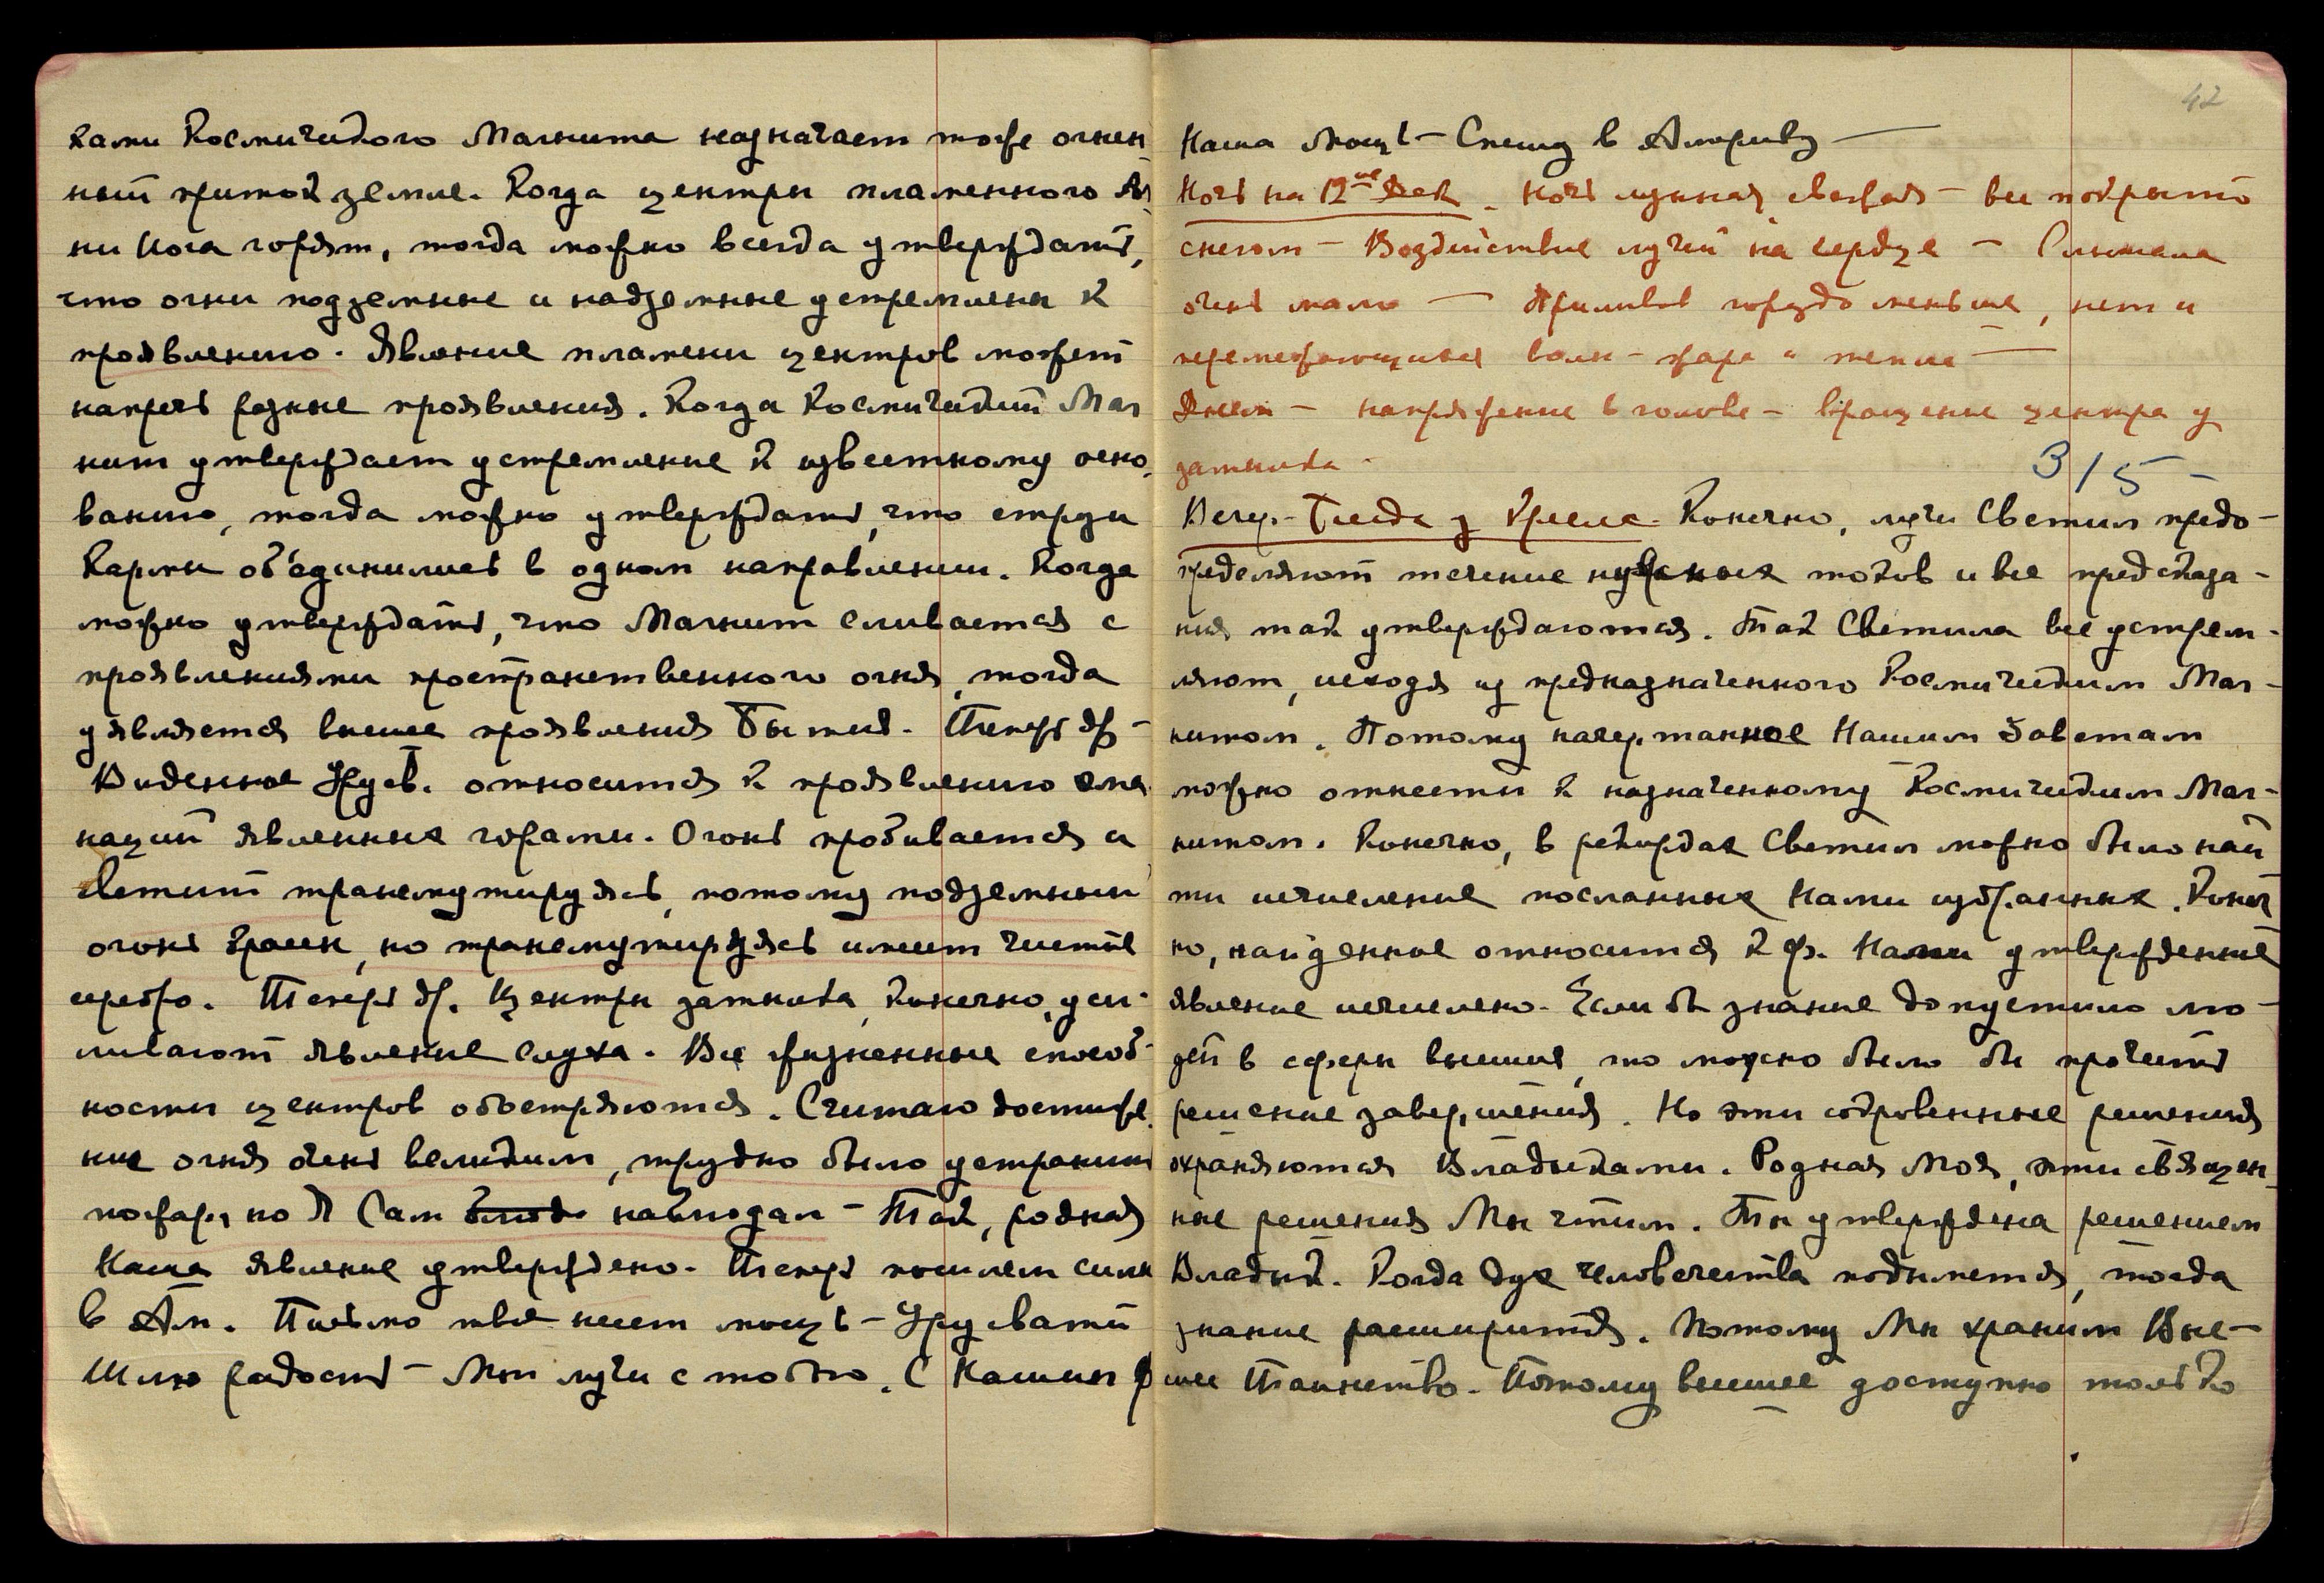 ками Космического Магнита назначает тоже огнен
ный приток земле. Когда центры пламенного Аг
ни Йога горят, тогда можно всегда утверждать,
что огни подземные и надземные устремлены к
проявлению. Явление пламени центров может
напречь разные проявления. Когда Космический Маг
нит утверждает устремление к известному осно,
ванию, тогда можно утверждать, что струи
Кармы об'единились в одном направлении. Когда
можно утверждать, что Магнит сливается с
проявлениями пространственного огня, тогда
является высшее проявления Бытия. Теперь др -
Виденное Урусв. относится к проявлению эма
наций явленных горами. Огонь пробивается и
светит трансмутируясь, потому подземный
огонь красн, но трансмутируясь имеет чистое
серебро. Теперь др. Центры затылка, конечно, уси-
ливают явление слуха. Все жизненные способ-
ности центров обостряются. Считаю достиже.
ние огня очень великим, трудно было устранить
пожар, но Я Сам наблюдал - Так, родная
Наша явление утверждено. Теперь пошлем силы
в Ам. Письмо твое несет мощь - Урусвати
Шлю радость - Мои лучи с тобою. С Нашим
42
Наша Мощь - Спешу в Америку —
Ночь на 12ое Дек. Ночь лунная, свежая - все покрыто
снегом - Воздействие лучей на сердце - Слышала
очень мало — Приливов гораздо меньше, нет и
перемежающихся волн - жара и тепла —
Днем - напряжение в голове - вращение центра у
затылка -
3/5 -
Вечер. - Беседа у Кресла. Конечно, лучи Светил предо-
пределяют течение нужных токов и все предсказа-
ния так утверждаются. Так Светила все устрем-
ляют, исходя из предназначенного Космическим Маг-
нитом. Потому начертанное Нашим Заветам
можно отнести к назначенному Космическим Маг-
нитом. Конечно, в рекордах Светил можно было най
ти исчисление посланных Нами избранных. Конеч
но, найденное относится к ф. Нами утвержденные
явление исчислено. Если бы знание допустило лю-
дей в сферы высшия, то можно было бы прочесть
решение завершения. Но эти сокровенные решения
охраняются Владыками. Родная Моя, эти священ
ные решения Мы чтим. Ты утверждена решением
Владык. Когда дух человечества подымется, тогда
знание расширится. Потому Мы храним Выс-
шее Таинство. Потому высшее доступно только